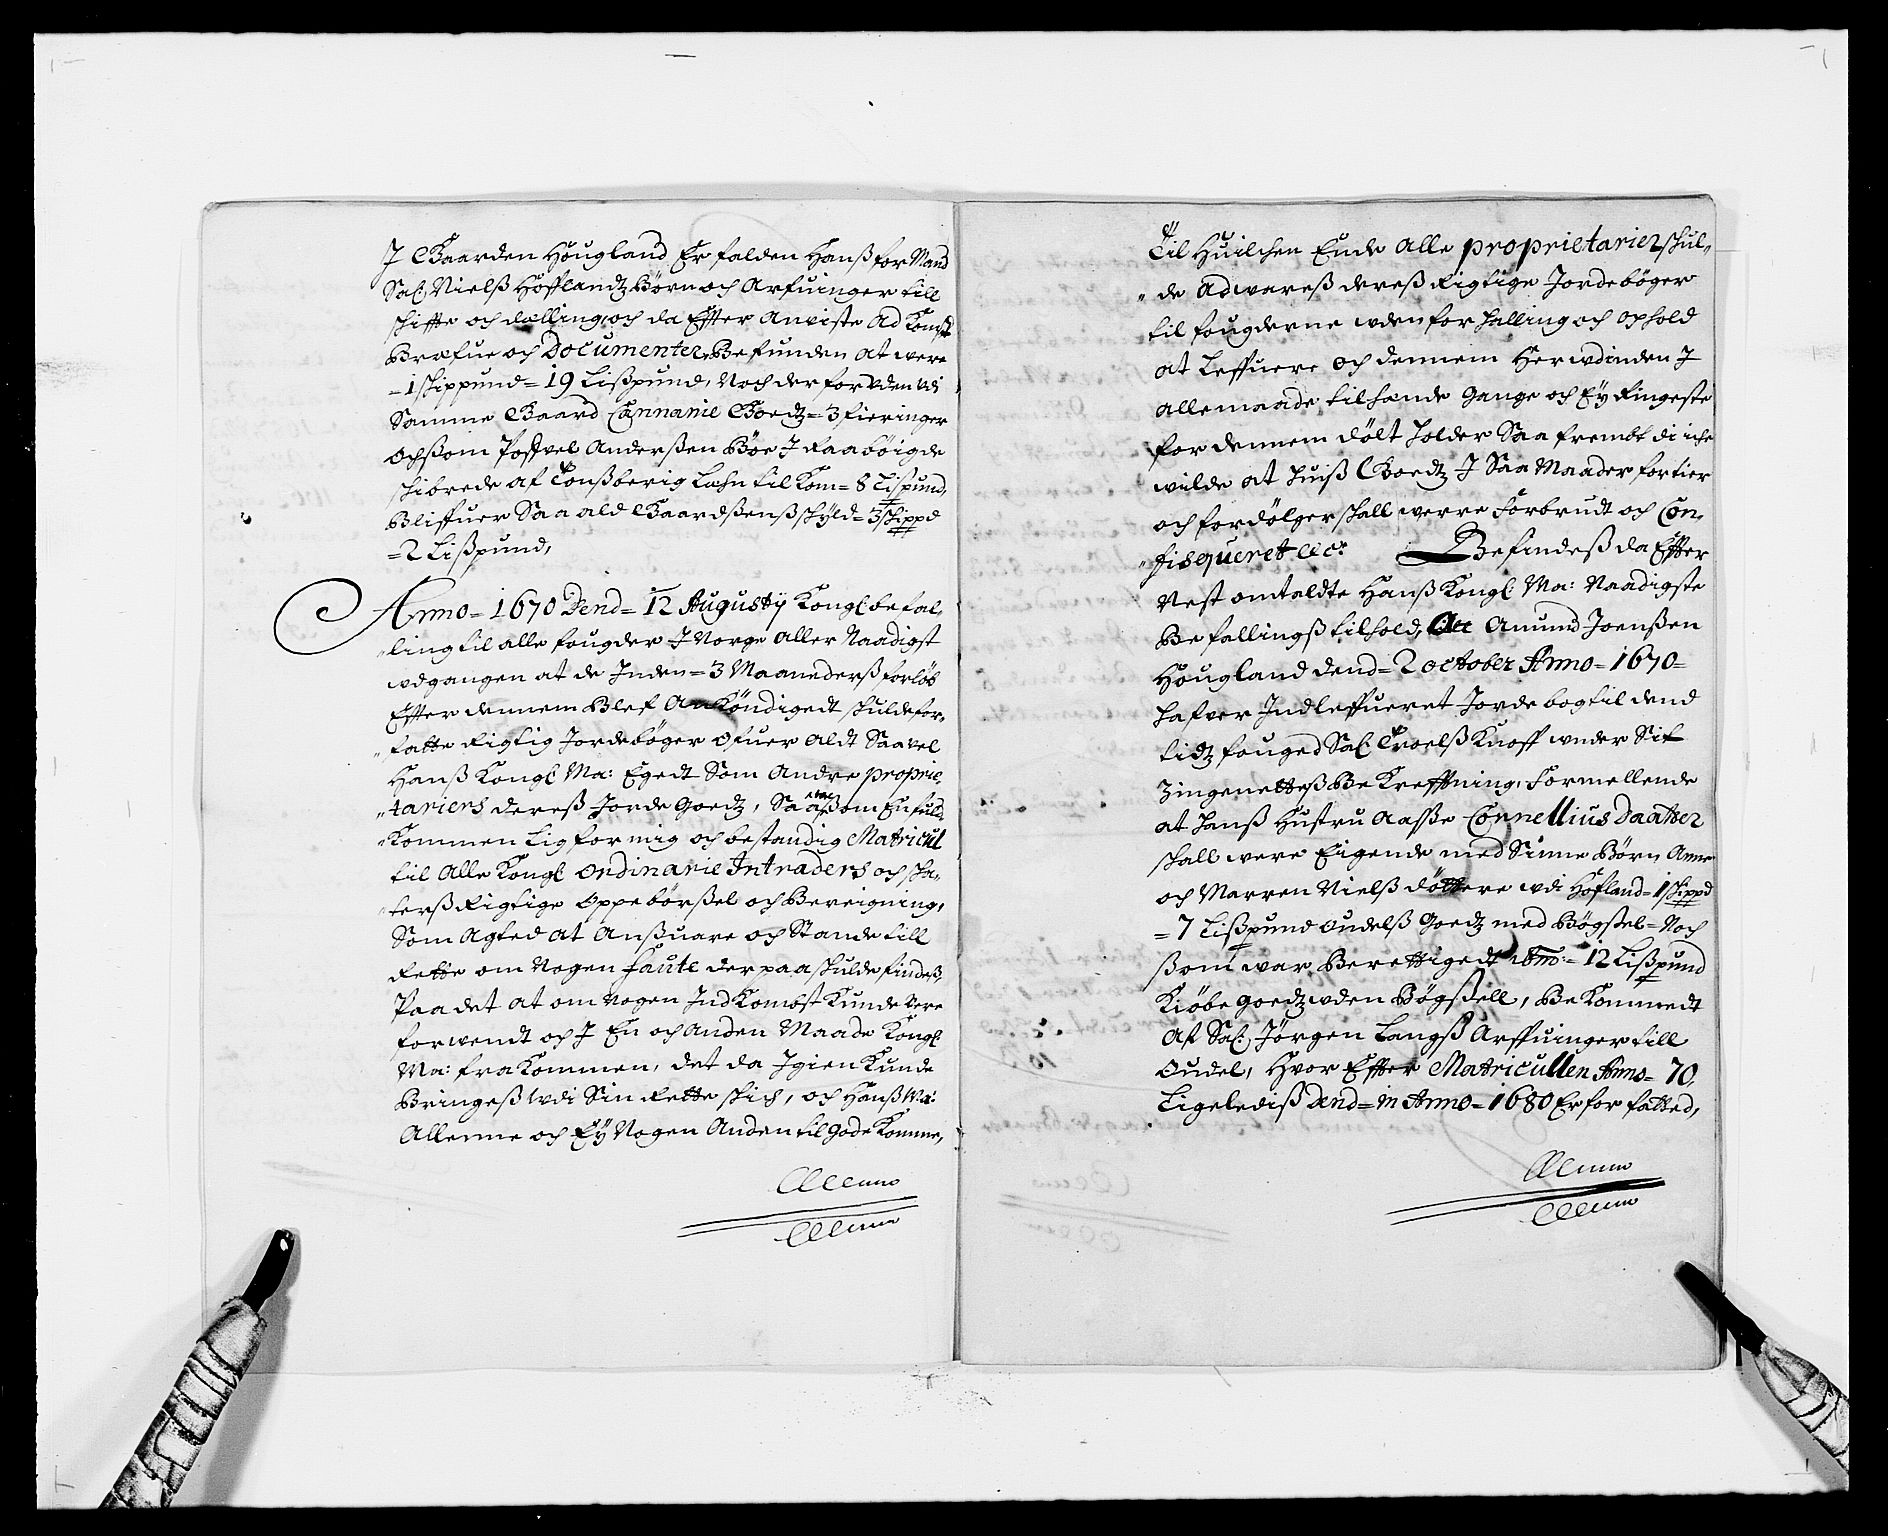 J Gaarden Hougland Er falden Hanß formand
Sal: Nielß Hofflandtz Børn och Arfuinger till
schiffte och dælling, och da Effter Anviste Ad Komst
Brefue och Documenter, Befunden at were
= 1 schippund = 19 Lißpund, Noch der foruden udi
Samme Gaard Cannanie Goedtz = 3 fieringer
Ochsom Poffvel Anderßen Böe J Raaböigde
schibrede af Tonßberig Læhn til Kom = 8 Lispund,
Bliffuer Saa ald Gaardßenß schÿld = 3 schippd
= 2 Lißpund,
Anno = 1670 Dend = 12 Augustÿ Kongl: befal,
ling til alle fougder J Norge Aller Naadigst
udgangen at de Inden = 3 Maanederß forløb
Effter dennem Blef An Köndigedt skulde for,
fatte Rigtig Jordebøger Ofuer Aldt Saavel
Hanß Kongl: Ma: Egedt Som Andre proprie
tariers dereß Jorde Goedtz, Saa som En fuld,
Kommen Ligformig och bestandig Matricul
til Alle Kongl: Ordinarie Intraders och ska,
terß Rigtige Oppebörßel och Bereigning,
Som Agted at Anßuare och Stande till
Rette om Nogen faute der paa skulde findeß,
Paa det at om Nogen Ind Kombst Kunde Vere
forvendt och J En och anden Maade Kongl:
Ma: fra Kommen, det da Igien Kunde
Bringeß udi Sin Rette skich, och Hanß Ma:
Allenne och Eÿ Nogen Anden til gode Komme,
Til Huilchen Ende Alle proprietarier skul,
de Advareß dereß Rigtige Jordebøger
til fougderne uden forhalling och ophold
at Leffuere och dennem Her udinden J
alle maade tilhænde gange och Eÿ Ringeste
for dennem dölt holder Saa fremt di iche
wilde at huiß Goedtz J Saa Maader fortier
och fordölger skall werre Forbrudt och Con,
fisqueret etc: Befindeß da Effter
Nest omtaldte Hanß Kongl: Ma: Naadigste
Befallingß tilhold, At Amund Joenßen
Hougland dend = 2 october Anno = 1670 =
hafuer Indleffueret Jordebog til dend
tidtz fouged Sal: Troelß Knoff under Sit
Zingenetteß Be Kreffning, Formellende
at hanß Hustru Aasße Cornellius daatter
skall were Eigende med Sinne Børn Anne
och Marren Nielß döttere udi Hofland = 1 schippd
= 7 Lißpund Oudelß Goedtz med Bögssel = Noch
ßom war Berettigedt = 12 Lißpund
Kiöbe goedtz uden Bögssell, Be Kommedt
Af Sal: Jörgen Langß Arffuinger till
Oudel, Hvor Effter Matricullen Anno = 70,
Ligelediß dend = in Anno = 1680 Er for fatted,